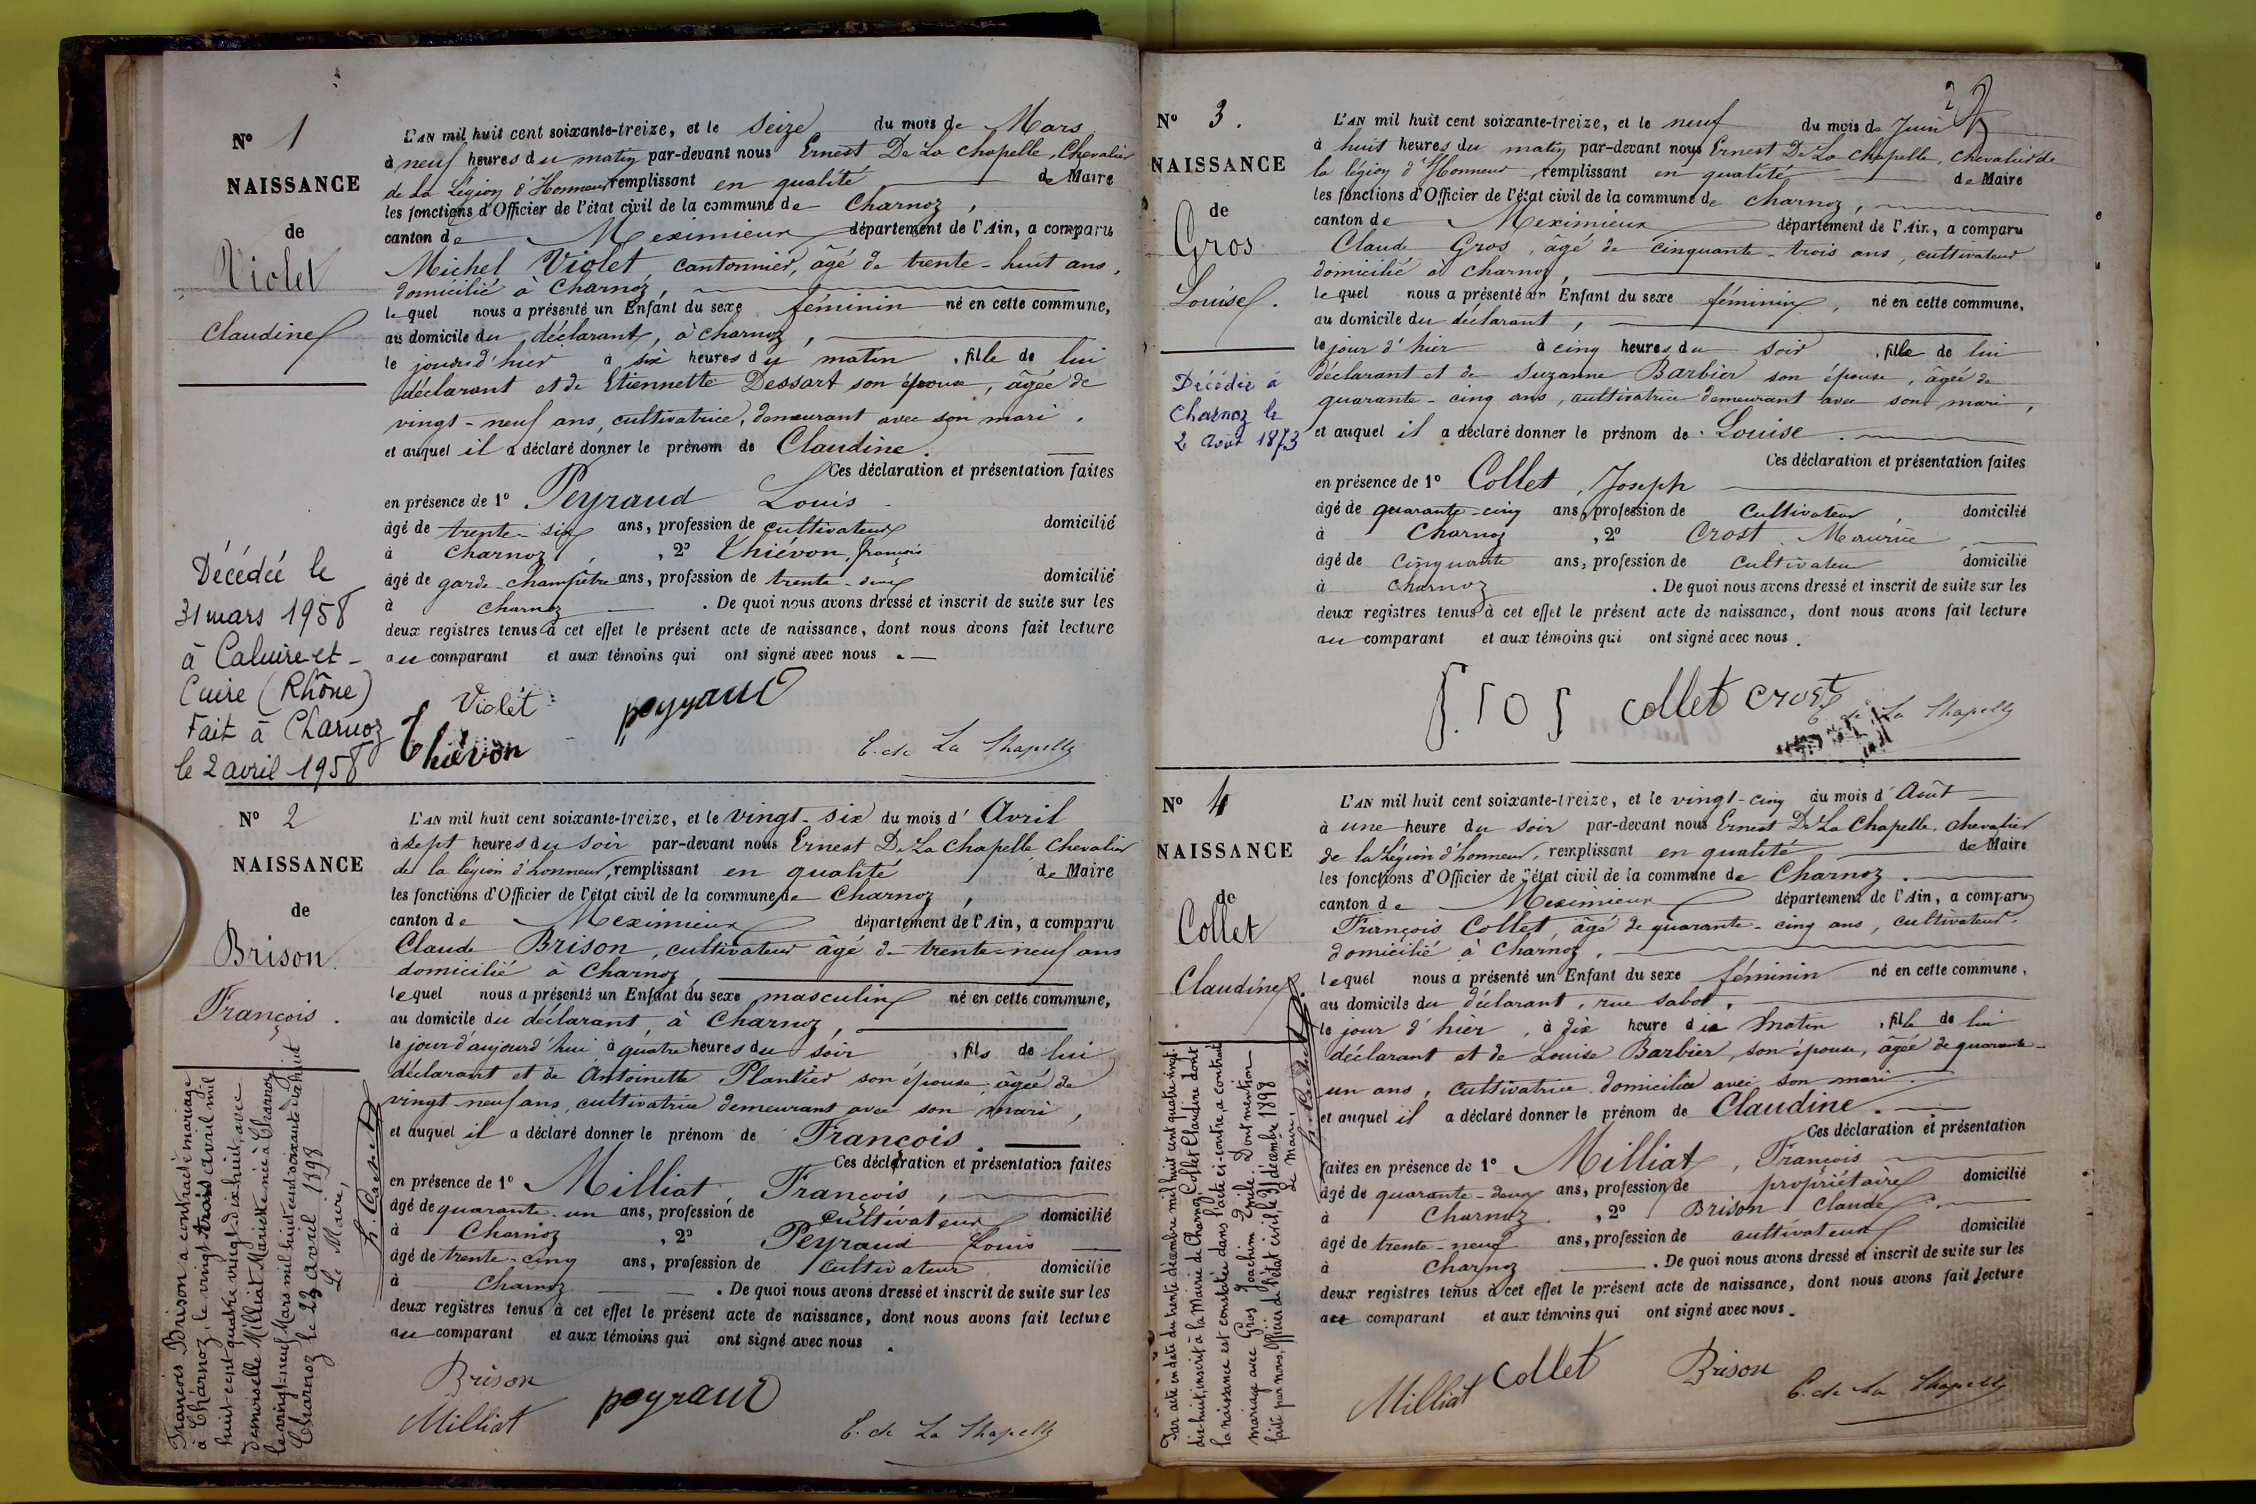 Nº 1
NAISSANCE
de
Violet
Claudine
L'AN mil huit cent soixante-treize, et le seize du mois de Mars
à neuf heures du matin par-devant nous Ernest De La Chapelle, Chevalier
de la Légion d'Honneur remplissant en qualité de Maire
les fonctions d'Officier de l'état civil de la commune de Charnoz,
canton de Meximieux département de l'Ain, a comparu
Michel Violet, cantonnier, âgé de trente-huit ans,
domicilié à Charnoz,
lequel nous a présenté un Enfant du sexe féminin né en cette commune,
au domicile du déclarant, à Charnoz,
le jour d'hier à six heures du matin, fille de lui
déclarant et de Etiennette Dessart son épouse, âgée de
vingt-neuf ans, cultivatrice, demeurant avec son mari.
et auquel il a déclaré donner le prénom de Claudine.
Ces déclaration et présentation faites
en présence de 1º Peyraud Louis
âgé de trente-six ans, profession de cultivateur domicilié
à Charnoz, 2º Thiévon, françois
âgé de garde-champêtre ans, profession de trente-deux domicilié
à Charnoz . De quoi nous avons dressé et inscrit de suite sur les
deux registres tenus à cet effet le présent acte de naissance, dont nous avons fait lecture
au comparant et aux témoins qui ont signé avec nous.
Violet peyraud
Thiévon E. de La Chapelle
Décédée le
31 mars 1958
à Caluire-et-
Cuire (Rhône)
Fait à Charnoz
le 2 avril 1958
Nº 2
NAISSANCE
de
Brison
François.
L'AN mil huit cent soixante-treize, et le vingt-six du mois d'Avril
à sept heures du soir par-devant nous Ernest De La Chapelle Chevalier
de la légion d'honneur, remplissant en qualité de Maire
les fonctions d'Officier de l'état civil de la commune de Charnoz,
canton de Meximieux département de l'Ain, a comparu
Claude Brison, cultivateur âgé de trente-neuf ans
domicilié à Charnoz,
lequel nous a présenté un Enfant du sexe masculin né en cette commune,
au domicile du déclarant, à Charnoz,
le jour d'aujourd'hui à quatre heures du soir, fils de lui
déclarant et de Antoinette Plantier son épouse âgée de
vingt-neuf ans, cultivatrice demeurant avec son mari,
et auquel il a déclaré donner le prénom de François.
Ces déclaration et présentation faites
en présence de 1º Milliat, François,
âgé de quarante-un ans, profession de cultivateur domicilié
à Charnoz, 2º Peyraud Louis
âgé de trente-cinq ans, profession de cultivateur domicilié
à Charnoz . De quoi nous avons dressé et inscrit de suite sur les
deux registres tenus à cet effet le présent acte de naissance, dont nous avons fait lecture
au comparant et aux témoins qui ont signé avec nous.
Brison
Milliat peyraud E. de La Chapelle
François Brison a contracté mariage
à Charnoz, le vingt trois avril mil
huit-cent-quatre vingt-dix-huit, avec
demoiselle Milliat Mariette née à Charnoz
le vingt-neuf Mars mil huit cent soixante dix huit
Charnoz le 23 avril 1898
Le Maire,
2
Nº 3.
NAISSANCE
de
Gros
Louise.
L'AN mil huit cent soixante-treize, et le neuf du mois de Juin
à huit heures du matin par-devant nous Ernest De La Chapelle, chevalier de
la légion d'Honneur, remplissant en qualité de Maire
les fonctions d'Officier de l'état civil de la commune de Charnoz,
canton de Meximieux département de l'Ain, a comparu
Claude Gros, âgé de cinquante-trois ans, cultivateur
domicilié à Charnoz,
lequel nous a présenté un Enfant du sexe féminin, né en cette commune,
au domicile du déclarant,
le jour d'hier à cinq heures du soir, fille de lui
déclarant et de Suzanne Barbier son épouse, âgée de
quarante-cinq ans, cultivatrice demeurant avec son mari,
et auquel il a déclaré donner le prénom de Louise.
Ces déclaration et présentation faites
en présence de 1º Collet, Joseph
âgé de quarante-cinq ans, profession de Cultivateur, domicilié
à Charnoz, 2º Crost Maurice,
âgé de Cinquante ans, profession de Cultivateur domicilié
à Charnoz . De quoi nous avons dressé et inscrit de suite sur les
deux registres tenus à cet effet le présent acte de naissance, dont nous avons fait lecture
au comparant et aux témoins qui ont signé avec nous.
gros collet crost
E. de La Chapelle
Décédée à
Charnoz le
2 Août 1873
Nº 4
NAISSANCE
de
Collet
Claudine.
L'AN mil huit cent soixante-treize, et le vingt-cinq du mois d'Août
à une heure du soir par-devant nous Ernest De La Chapelle, chevalier
de la Légion d'honneur, remplissant en qualité de Maire
les fonctions d'Officier de l'état civil de la commune de Charnoz.
canton de Meximieux département de l'Ain, a comparu
François Collet, âgé de quarante-cinq ans, cultivateur.
domicilié à Charnoz,
lequel nous a présenté un Enfant du sexe féminin né en cette commune,
au domicile du déclarant, rue sabot,
le jour d'hier, à dix heure du matin, fille de lui
déclarant et de Louise Barbier, son épouse, âgée de quarante-
un ans, cultivatrice domiciliée avec son mari.
et auquel il a déclaré donner le prénom de Claudine.
Ces déclaration et présentation
faites en présence de 1º Milliat, François
âgé de quarante-deux ans, profession de propriétaire domicilié
à Charnoz, 2º Brison Claude
âgé de trente-neuf ans, profession de cultivateur domicilié
à Charnoz . De quoi nous avons dressé et inscrit de suite sur les
deux registres tenus à cet effet le présent acte de naissance, dont nous avons fait lecture
au comparant et aux témoins qui ont signé avec nous.
Milliat collet Brison E. de La Chapelle
Par acte en date du trente décembre mil huit cent quatre vingt
dix-huit, inscrit à la Mairie de Charnoz, Collet Claudine dont
la naissance est constatée dans l'acte ci-contre, a contracté
mariage avec Gros Joachim Emile. Dont mention
faite par nous, Officier de l'état civil, le 31 décembre 1898
Le Maire,